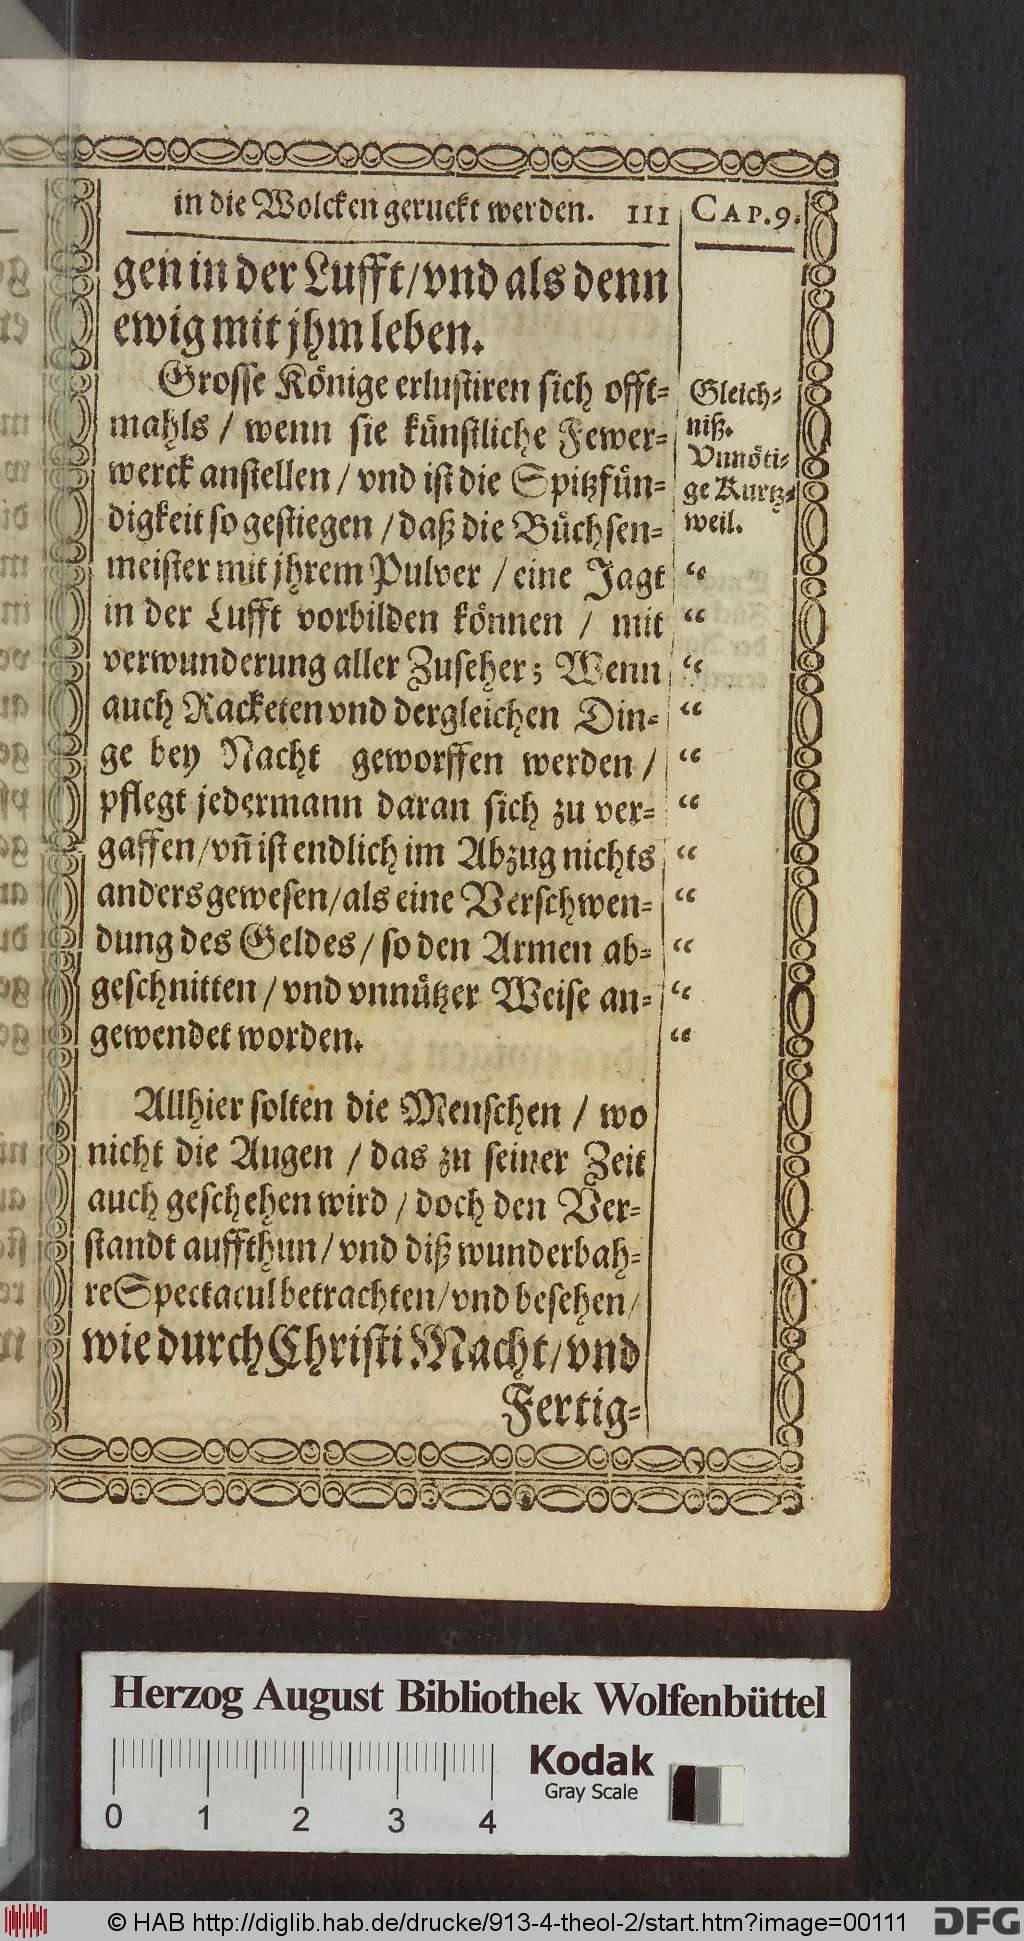 in die Wolcken geruckt werden. 111 CAP.9.
gen in der Lufft/vnd als denn
ewig mit jhm leben.
Grosse Könige erlustiren sich offt-
mahls / wenn sie künstliche Fewer-
werck anstellen / vnd ist die Spitzfün-
digkeit so gestiegen / daß die Büchsen-
meister mit jhrem Pulver / eine Jagt
in der Lufft vorbilden können / mit
verwunderung aller Zuseher; Wenn
auch Racketen vnd dergleichen Din-
ge bey Nacht geworffen werden /
pflegt jedermann daran sich zu ver-
gaffen/vñ ist endlich im Abzug nichts
anders gewesen/als eine Verschwen-
dung des Geldes / so den Armen ab-
geschnitten / vnd vnnützer Weise an-
gewendet worden.
Gleich-
niß.
Vnnöti-
ge Kurtz-
weil.
“
“
“
“
“
“
“
“
“
“
“
Allhier solten die Menschen / wo
nicht die Augen / das zu seiner Zeit
auch geschehen wird / doch den Ver-
standt auffthun / vnd diß wunderbah-
re Spectacul betrachten/vnd besehen/
wie durch Christi Macht/vnd
Fertig-
Herzog August Bibliothek Wolfenbüttel
Kodak
Gray Scale
0 1 2 3 4
© HAB http://diglib.hab.de/drucke/913-4-theol-2/start.htm?image=00111
DFG